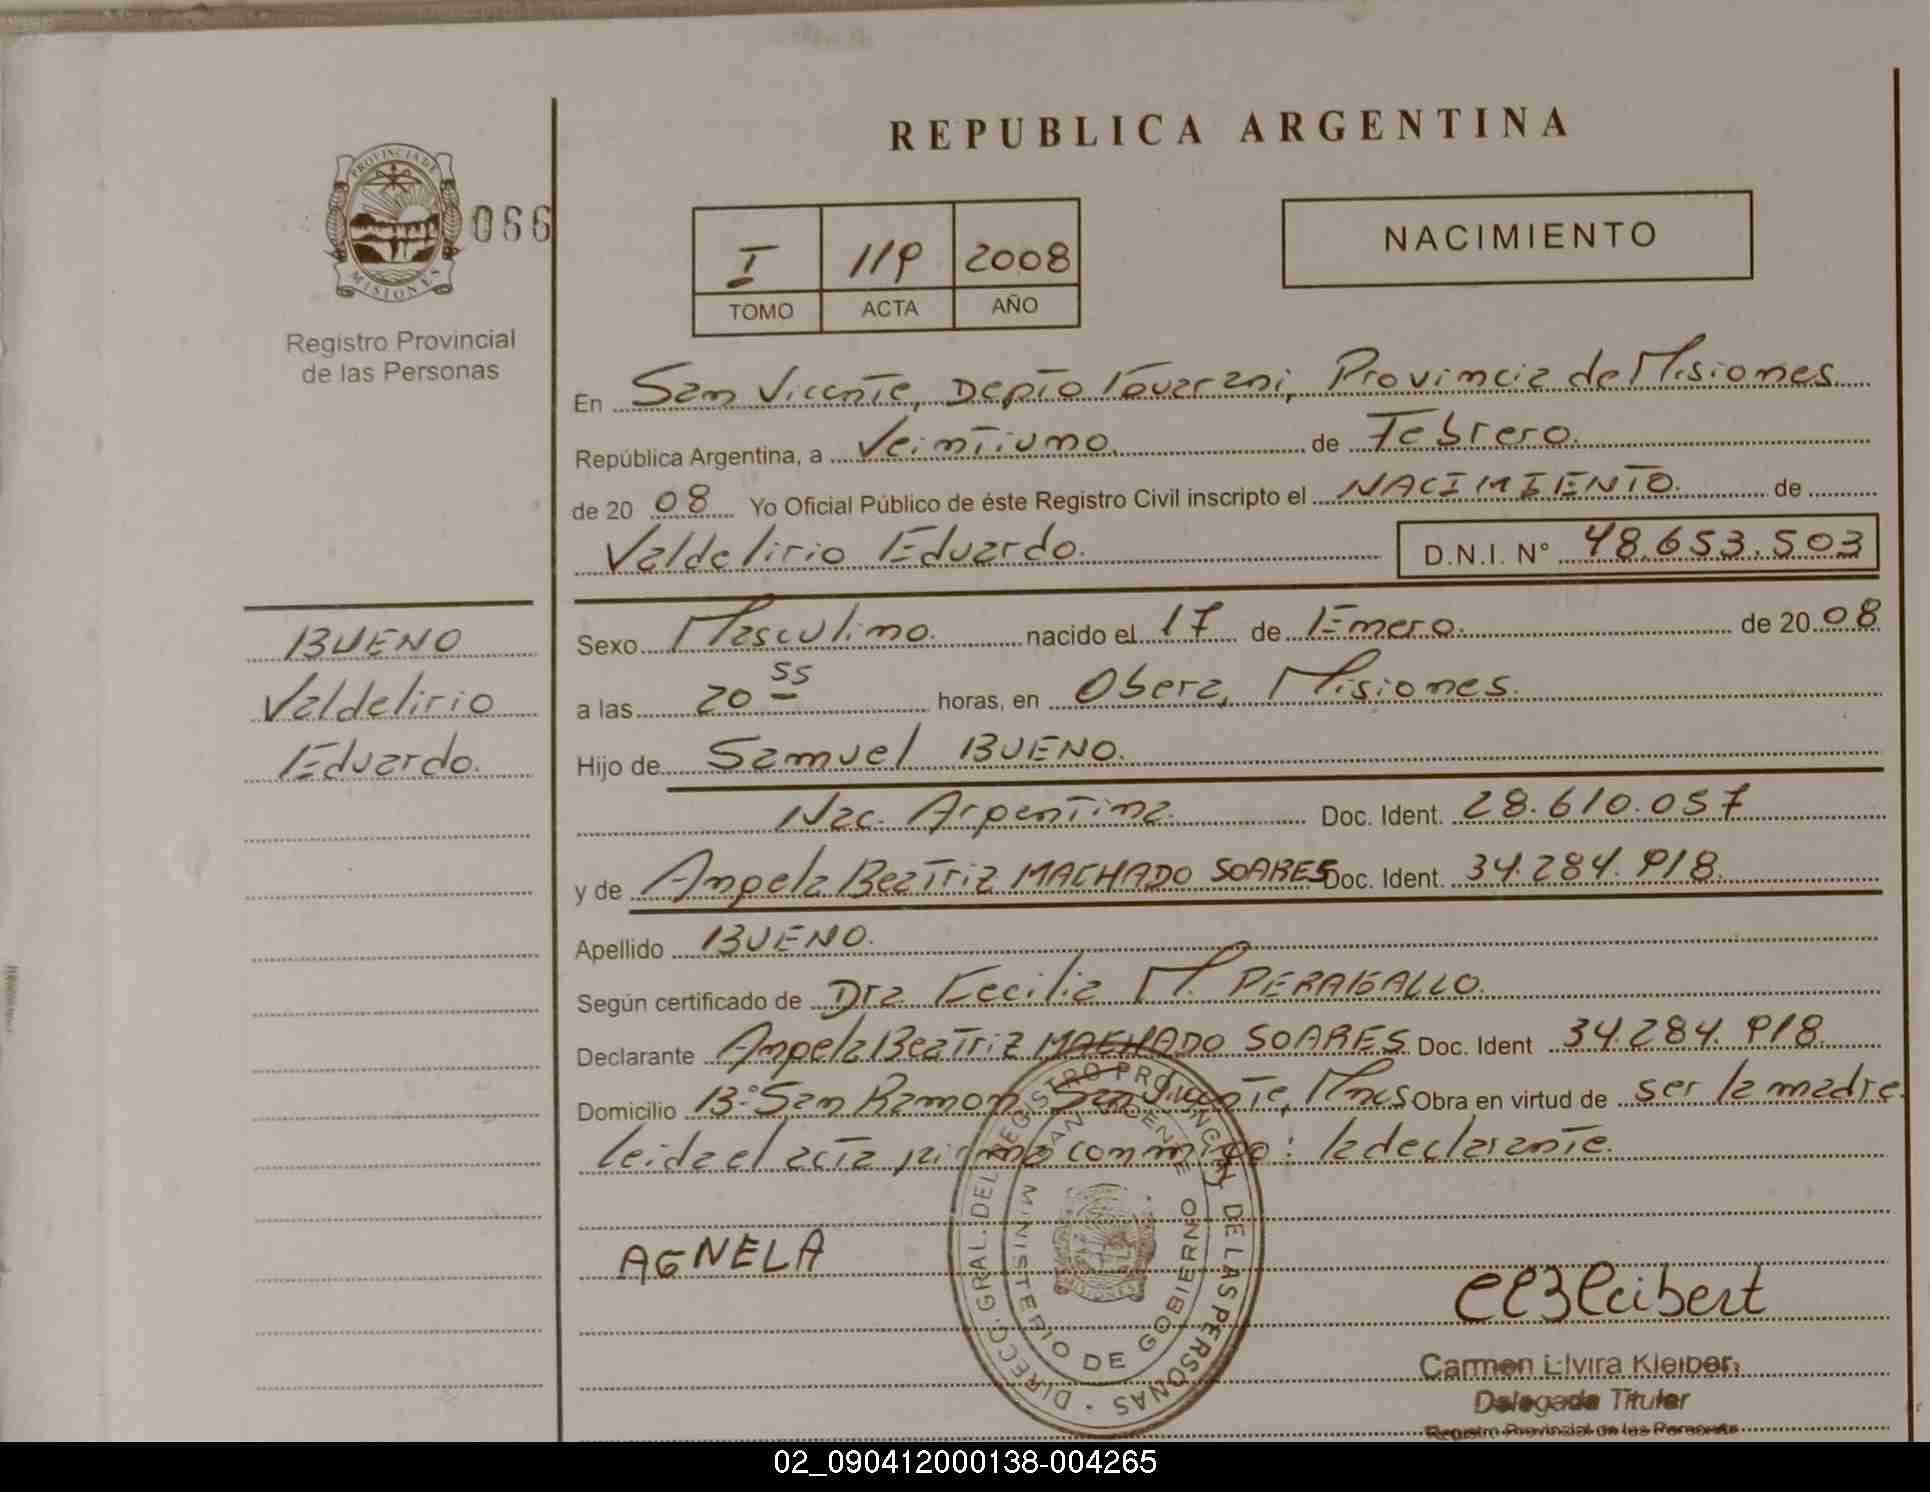 REPUBLICA ARGENTINA
PROVINCIA DE
MISIONES
066
Registro Provincial
de las Personas
I 119 2008
TOMO ACTA AÑO
NACIMIENTO
En San Vicente, Depto Guarani, Provincia de Misiones
República Argentina, a Veintiuno. de Febrero.
de 20 08 Yo Oficial Público de éste Registro Civil inscripto el NACIMIENTO. de
Valdelirio Eduardo. D.N.I. N° 48.653.503
BUENO
Valdelirio
Eduardo.
Sexo Masculino. nacido el 17 de Enero. de 20 08
a las 20 55 horas, en Obera, Misiones.
Hijo de Samuel BUENO.
Nac. Argentina. Doc. Ident. 28.610.057
y de Angela Beatriz MACHADO SOARES Doc. Ident. 34.284.918.
Apellido BUENO.
Según certificado de Dra Cecilia M. PERAGALLO.
Declarante Angela Beatriz MACHADO SOARES Doc. Ident 34.284.918.
Domicilio B° San Ramon San Vicente, Mnes Obra en virtud de ser la madre.
leida el acta firma conmigo: la declarante.
DIRECC. GRAL. DEL REGISTRO PROVINCIAL DE LAS PERSONAS
SAN VICENTE
MINISTERIO DE GOBIERNO
MISIONES
AGNELA
CEKleibert
Carmen Elvira Kleiber
Delegada Titular
Registro Provincial de las Personas
02_090412000138-004265